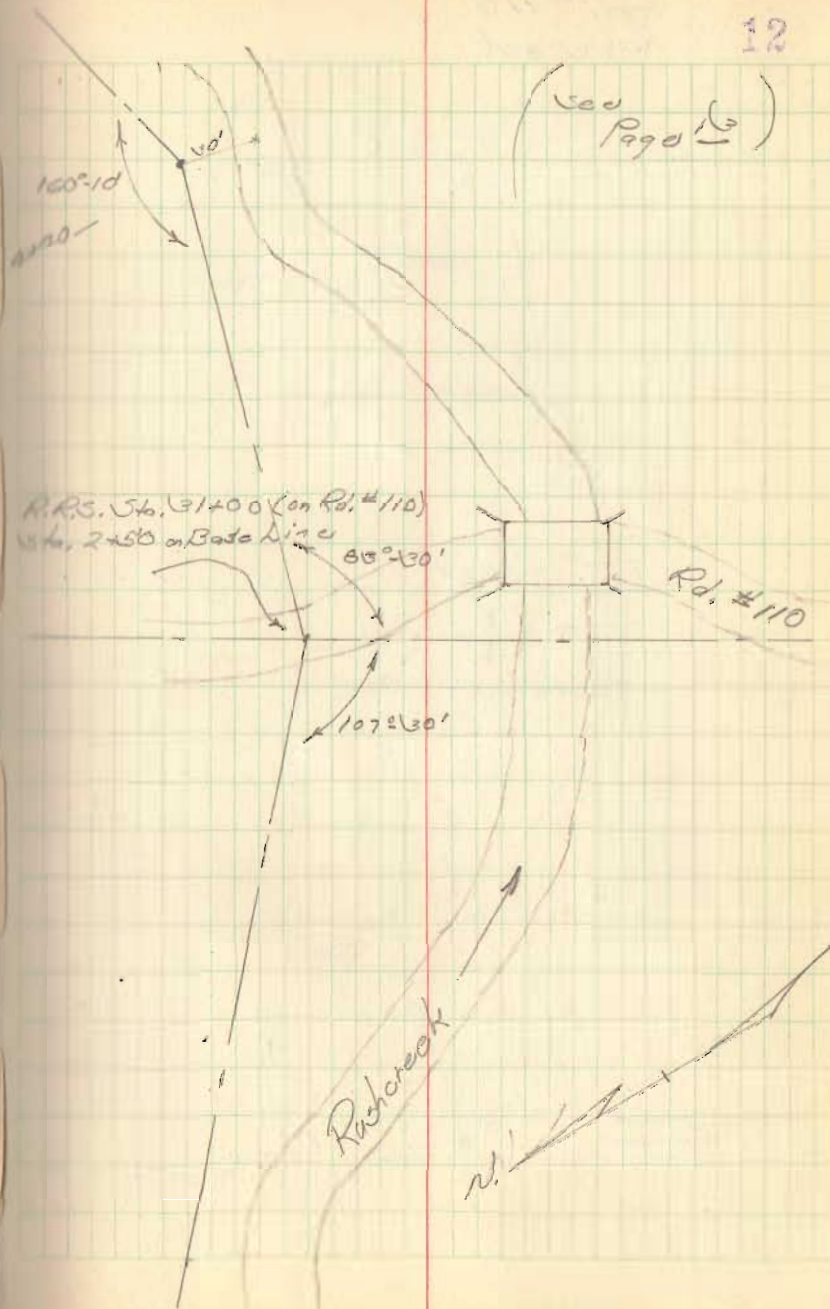 12
(See
Page 13)
30'
160°-10
R.R.S. Sta. 31+00 (on Rd. #110)
Sta. 2+50 on Base Line
88°-30'
Rd. #110
107°-30'
Rushcreek
N.